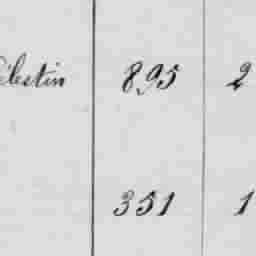 élestin 895 2
351 1